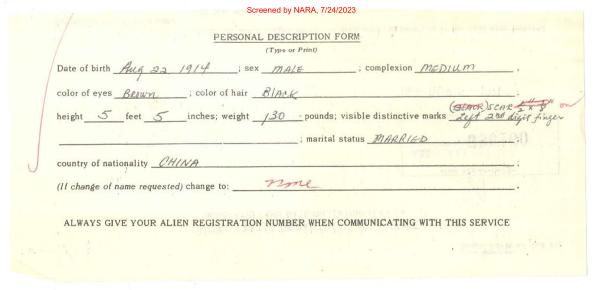 Screened by NARA, 7/24/2023
PERSONAL DESCRIPTION FORM
(Type or Print)
Date of birth Aug 22 1914 ; sex MALE ; complexion MEDIUM ,
color of eyes Brown ; color of hair BLACK ,
height 5 feet 5 inches; weight 130 pounds; visible distinctive marks SCAR on
left 2nd digit finger
; marital status MARRIED ,
country of nationality CHINA .
(If change of name requested) change to: none .
ALWAYS GIVE YOUR ALIEN REGISTRATION NUMBER WHEN COMMUNICATING WITH THIS SERVICE